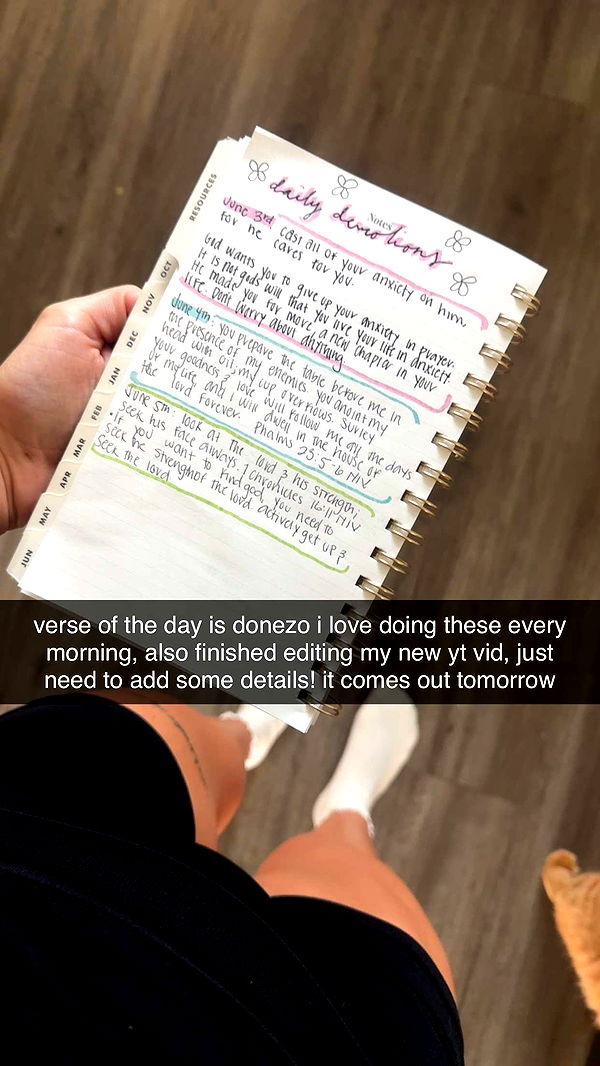 RESOURCES
OCT
NOV
DEC
JAN
FEB
MAR
APR
MAY
JUN
Notes
daily devotions
June 3rd: cast all of your anxiety on him,
for he cares for you.
God wants you to give up your anxiety in prayer.
It is not gods will that you live your life in anxiety.
He made you for more, a new chapter in your
life. Dont worry about anything
June 4th: you prepare the table before me in
the presence of my enemies. You anoint my
head with oil; my cup overflows. Surley
your goodness & love will follow me all the days
of my life and I will dwell in the house of
the lord forever. Phalms 23:5-6 NIV
June 5th: look at the lord & his strength;
seek his face always. 1 Chronicles 16:11 NIV
·If you want to find god, you need to
seek the strength of the lord. actively get up &
seek the lord
verse of the day is donezo i love doing these every
morning, also finished editing my new yt vid, just
need to add some details! it comes out tomorrow